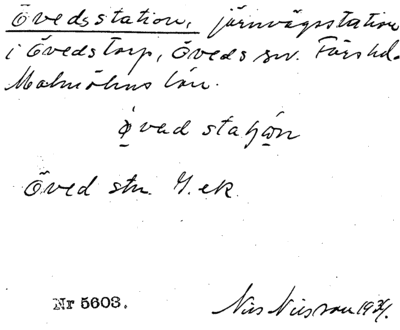 Övedsstation, järnvägsstation
i Övedstorp, Öveds sn. Färs hd.
Malmöhus län.
öved
Öved stn. G. ek.
Nr 5603.
Nils Nilsson 1934.